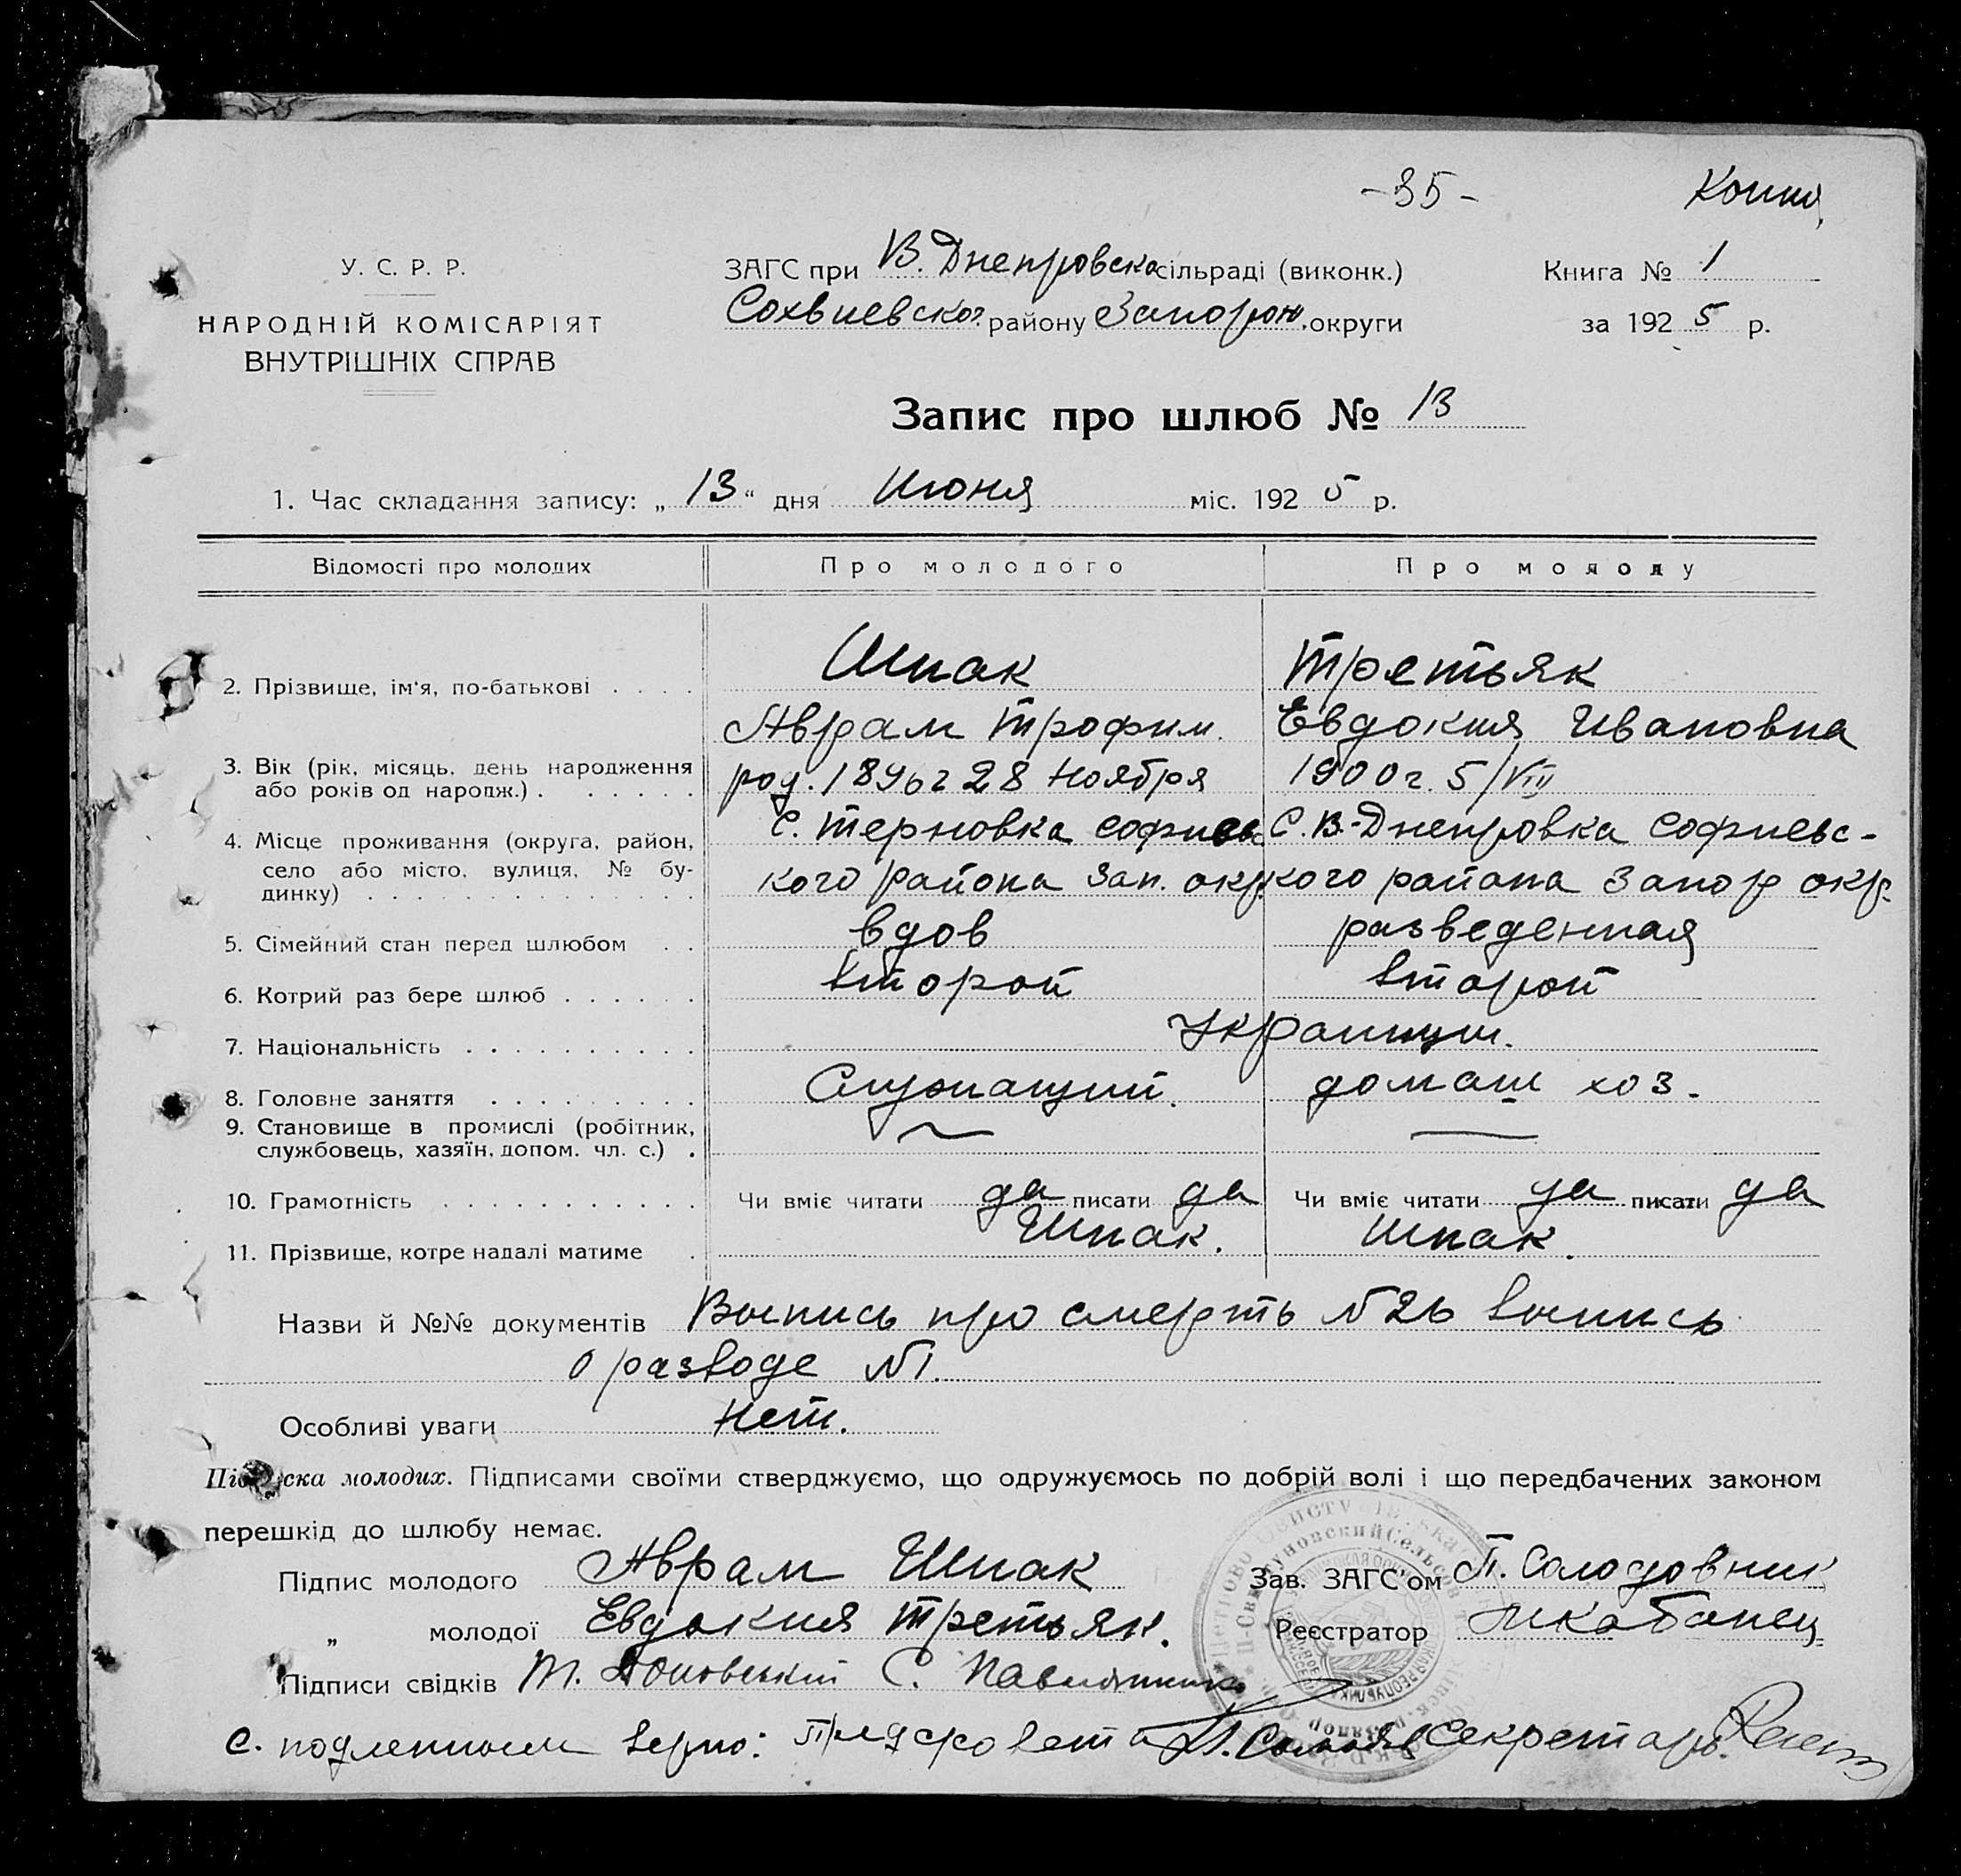 -35-
Копия
У. С. Р. Р.
НАРОДНІЙ КОМІСАРІЯТ
ВНУТРІШНІХ СПРАВ
ЗАГС при В. Днепровско сільраді (виконк.)
Сохвиевског. району Запорож. округи
Книга № 1
за 1925 р.
Запис про шлюб № 13
1. Час складання запису: „ 13 “ дня Июня міс. 1925 р.
Відомості про молодих
Про молодого
Про молоду
2. Прізвище, ім'я, по-батькові . . . .
Шпак
Аврам Трофим.
Третьяк
Евдокия Ивановна
3. Вік (рік, місяць, день народження
або років од народж.) . . . . . .
род. 1896 г 28 Ноября
1900 г. 5/VIII
4. Місце проживання (округа, район,
село або місто, вулиця, № бу-
динку) . . . . . . . . . . . . . .
с. Терновка Софиевс
кого района Зап. окр.
С. В.-Днепровка Софиевс-
кого района Запор окр.
5. Сімейний стан перед шлюбом . .
вдов
разведенная
6. Котрий раз бере шлюб . . . . . .
второй
второй
7. Національність . . . . . . . . . .
Украинцы.
8. Головне заняття . . . . . . . . .
Служащий.
домаш хоз.
9. Становище в промислі (робітник,
службовець, хазяїн, допом. чл. с.) .
10. Грамотність . . . . . . . . . . . .
Чи вміє читати да писати да
Чи вміє читати да писати да
11. Прізвище, котре надалі матиме .
Шпак.
Шпак.
Назви й №№ документів Выпись про смерть N 26 выпись
о разводе N 1.
Особливі уваги нет.
Підписка молодих. Підписами своїми стверджуємо, що одружуємось по добрій волі і що передбачених законом
перешкід до шлюбу немає.
Підпис молодого Аврам Шпак
Зав. ЗАГС'ом П. Солодовник
„ молодої Евдокия Третьяк.
Реєстратор Шкабанец
Підписи свідків Т. С.
С. подленным верно: Пред Секретарь